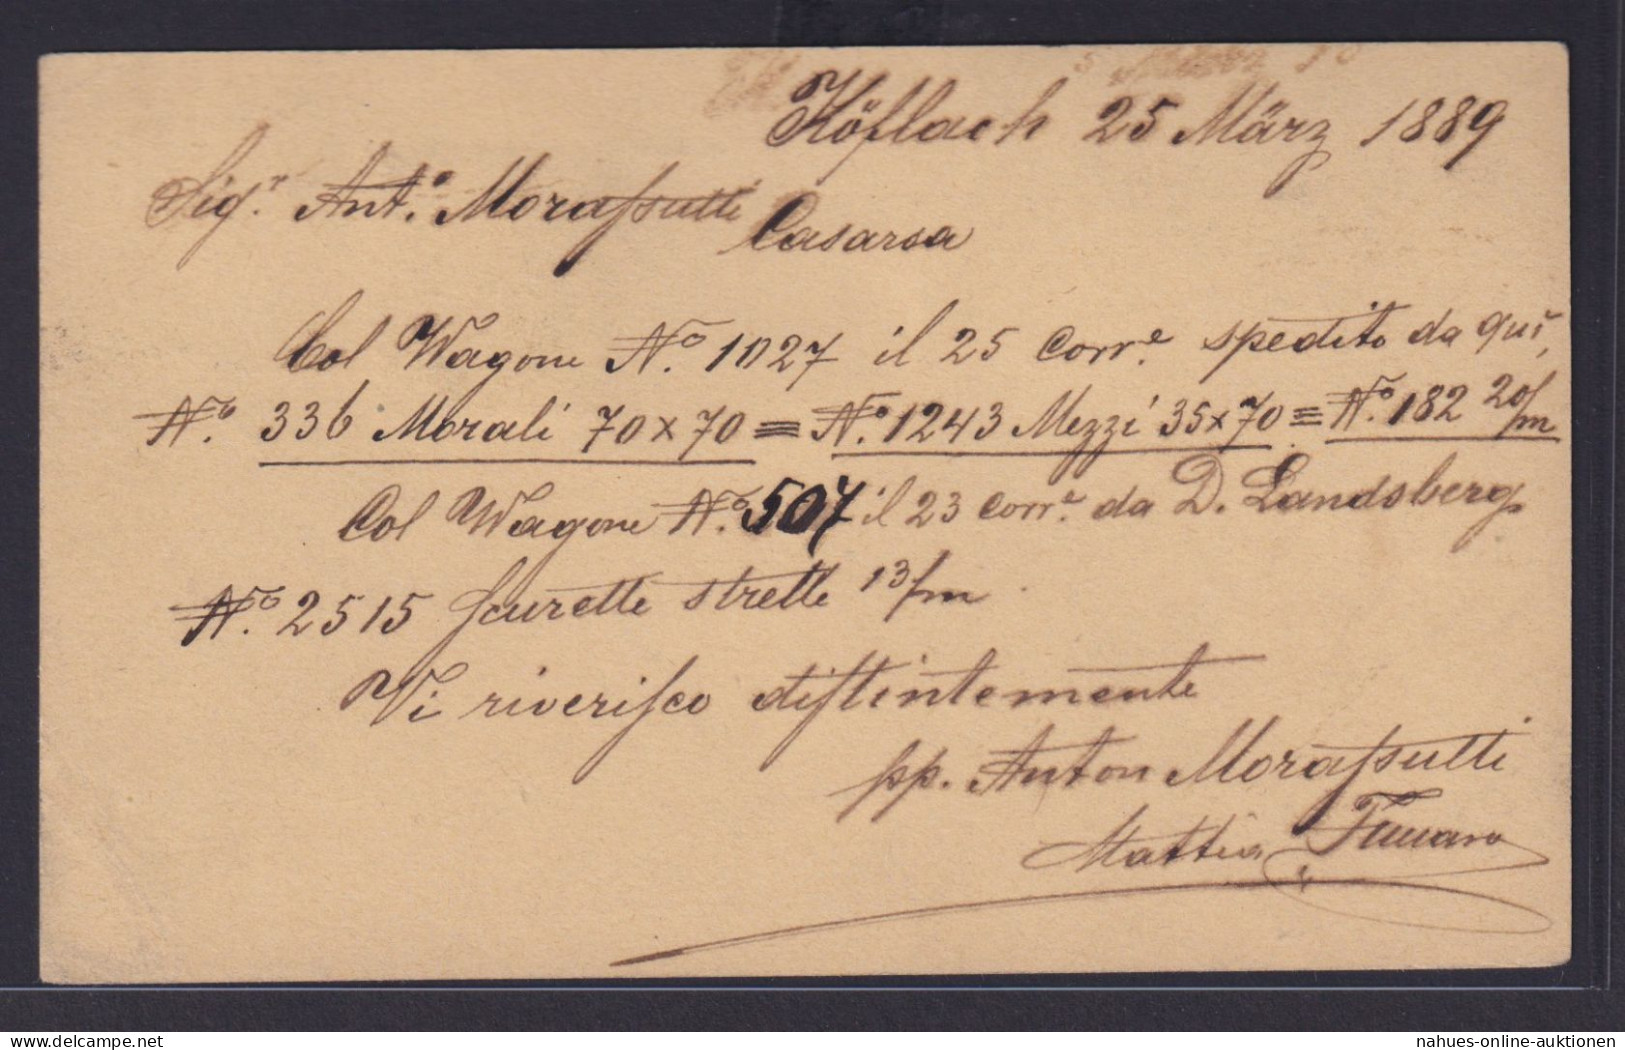 Köflach 25 März 1889
Sigr. Anto. Morassutti
Casarsa
Col Wagone No. 1027 il 25 corre. spedito da qui,
No. 336 Morali 70 x 70 = No. 1243 Mezzi 35 x 70 = No. 182 20/m
Col Wagone No. 507 il 23 corre. da D. Landsberg
No. 2515 scurette strette 13/m
Vi riverisco distintemente
pp. Anton Morassutti
Mattia
delcampe.net
nahues-online-auktionen